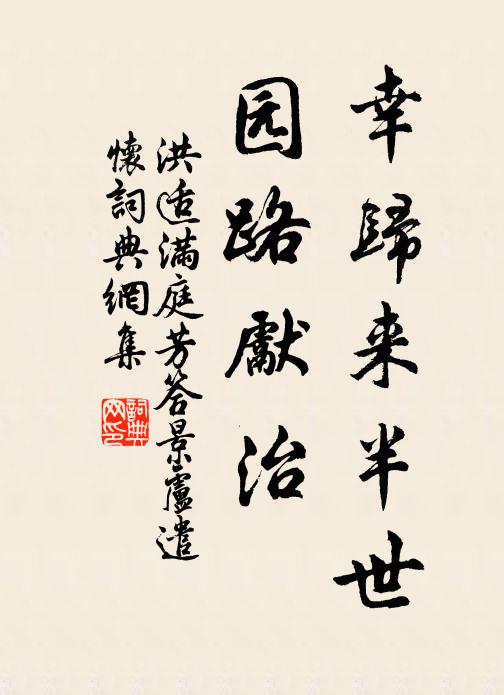 幸歸来半世
园路獻治
洪适滿庭芳答景盧遣
懷詞典網集
詞典
网印